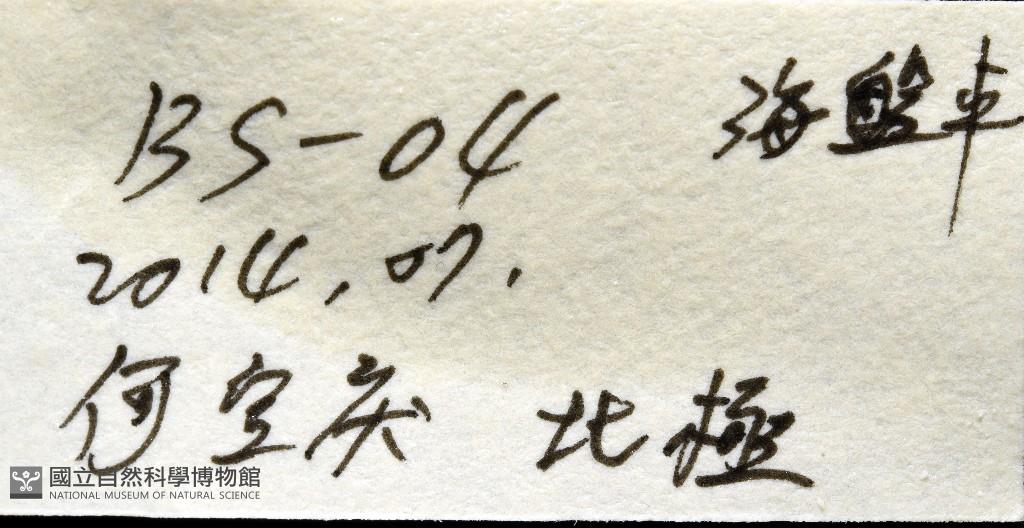 BS-04 海盤車
2014.07.
何宣庆 北極
國立自然科學博物館
NATIONAL MUSEUM OF NATURAL SCIENCE